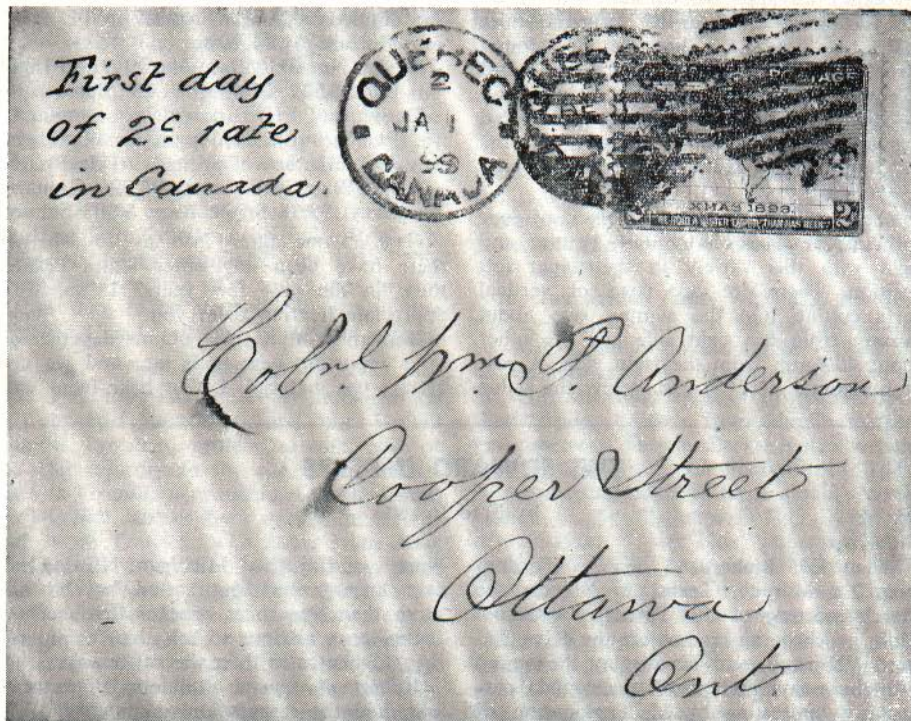 First day
of 2c rate
in Canada.
QUÉBEC
2
JA 1
99
CANADA
POSTAGE
XMAS 1898
2c
Colnl. Wm. P. Anderson
Cooper Street
Ottawa
Ont.